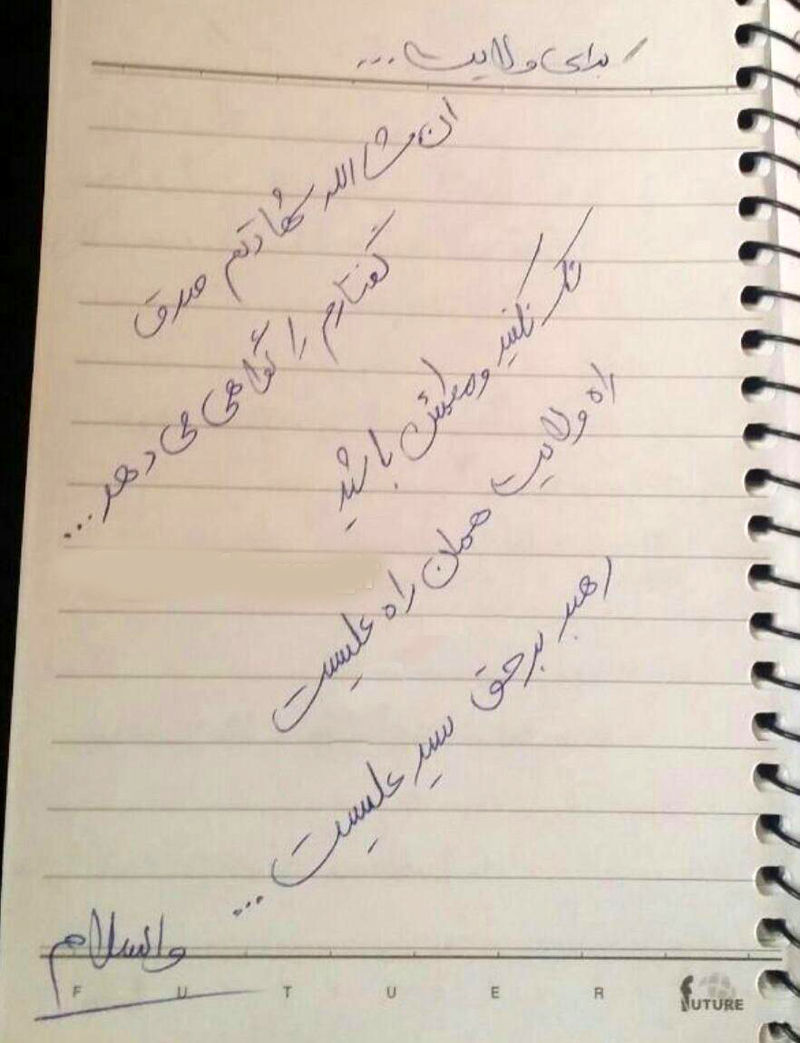 برای ولایت...
ان شاالله شهادتم صدق
گفتارم را گواهی می دهد...
شک نکنید ومطمئن باشید
راه ولایت همان راه علیست
رهبر برحق سید علیست...
والسلام
F U T U E R
fUTURE